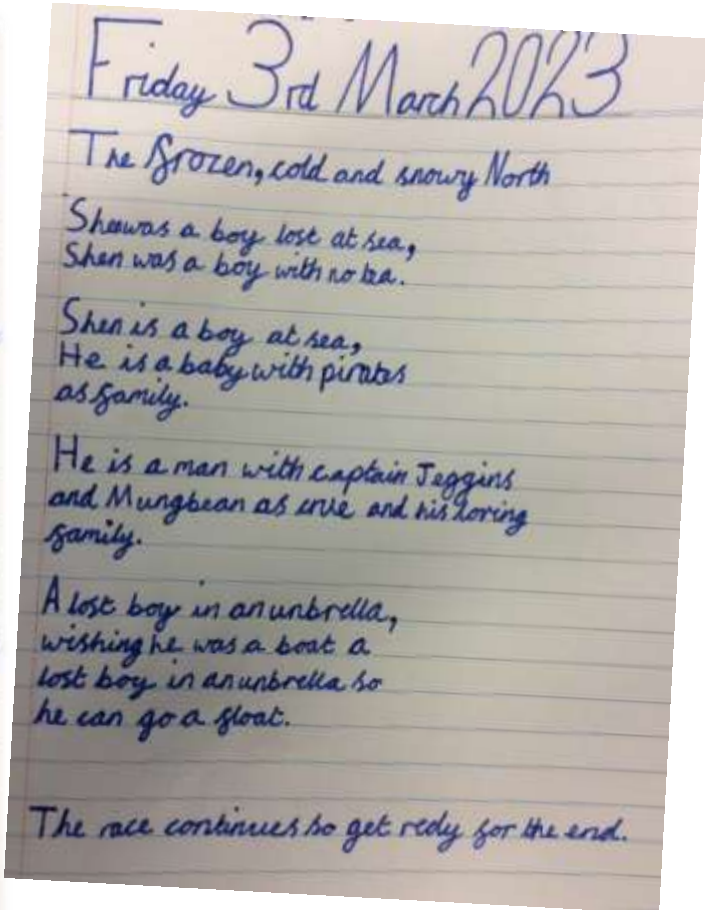 Friday 3rd March 2023
The frozen, cold and snowy North
Shen was a boy lost at sea,
Shen was a boy with no tea.
Shen is a boy at sea,
He is a baby with pirates
as family.
He is a man with captain Jeggins
and Mungbean as crue and his loving
family.
A lost boy in an unbrella,
wishing he was a boat a
lost boy in an unbrella so
he can go a float.
The race continues so get redy for the end.